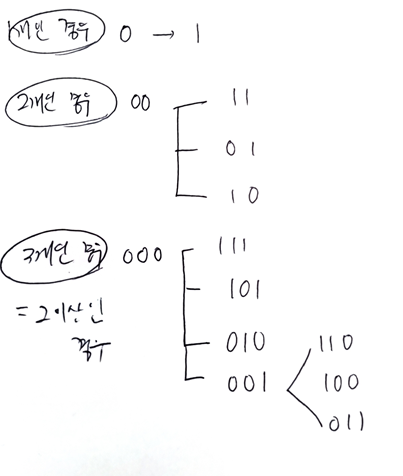 1개인 경우 0 → 1
2개인 경우 00
11
01
10
3개인 경우 000
= 2이상인
경우
111
101
010
001
110
100
011